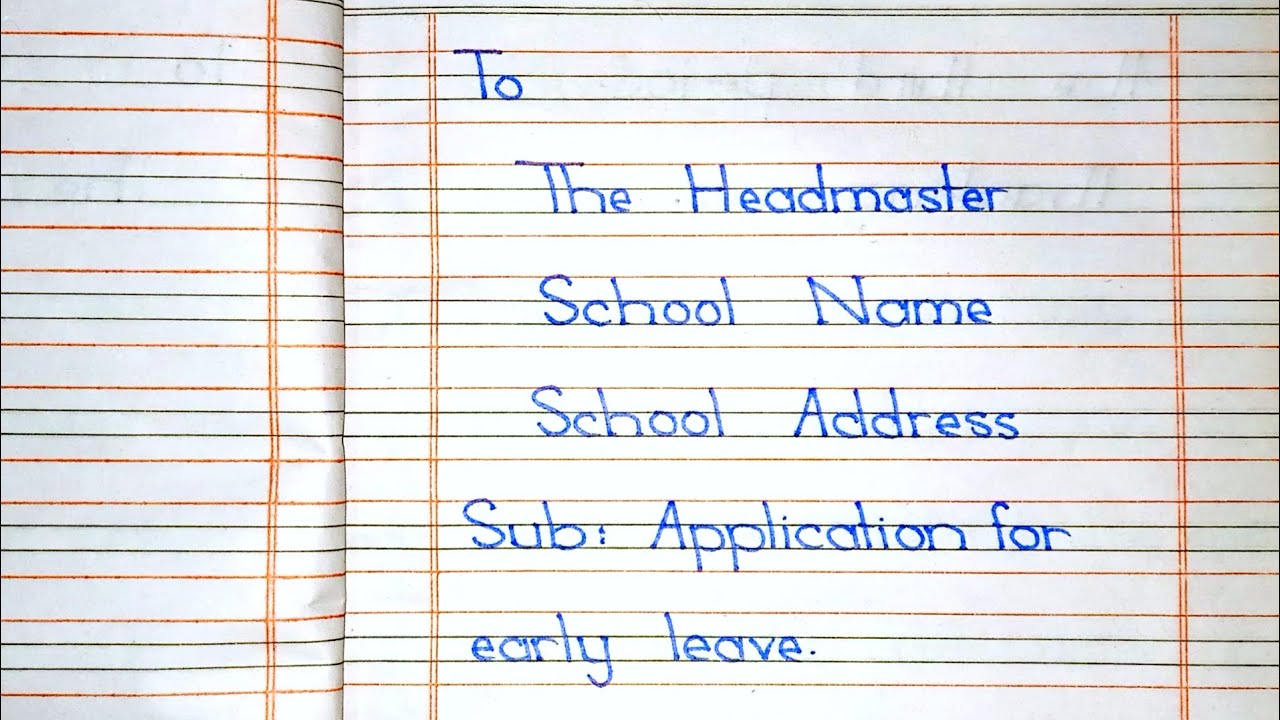 To
The Headmaster
School Name
School Address
Sub: Application for
early leave.